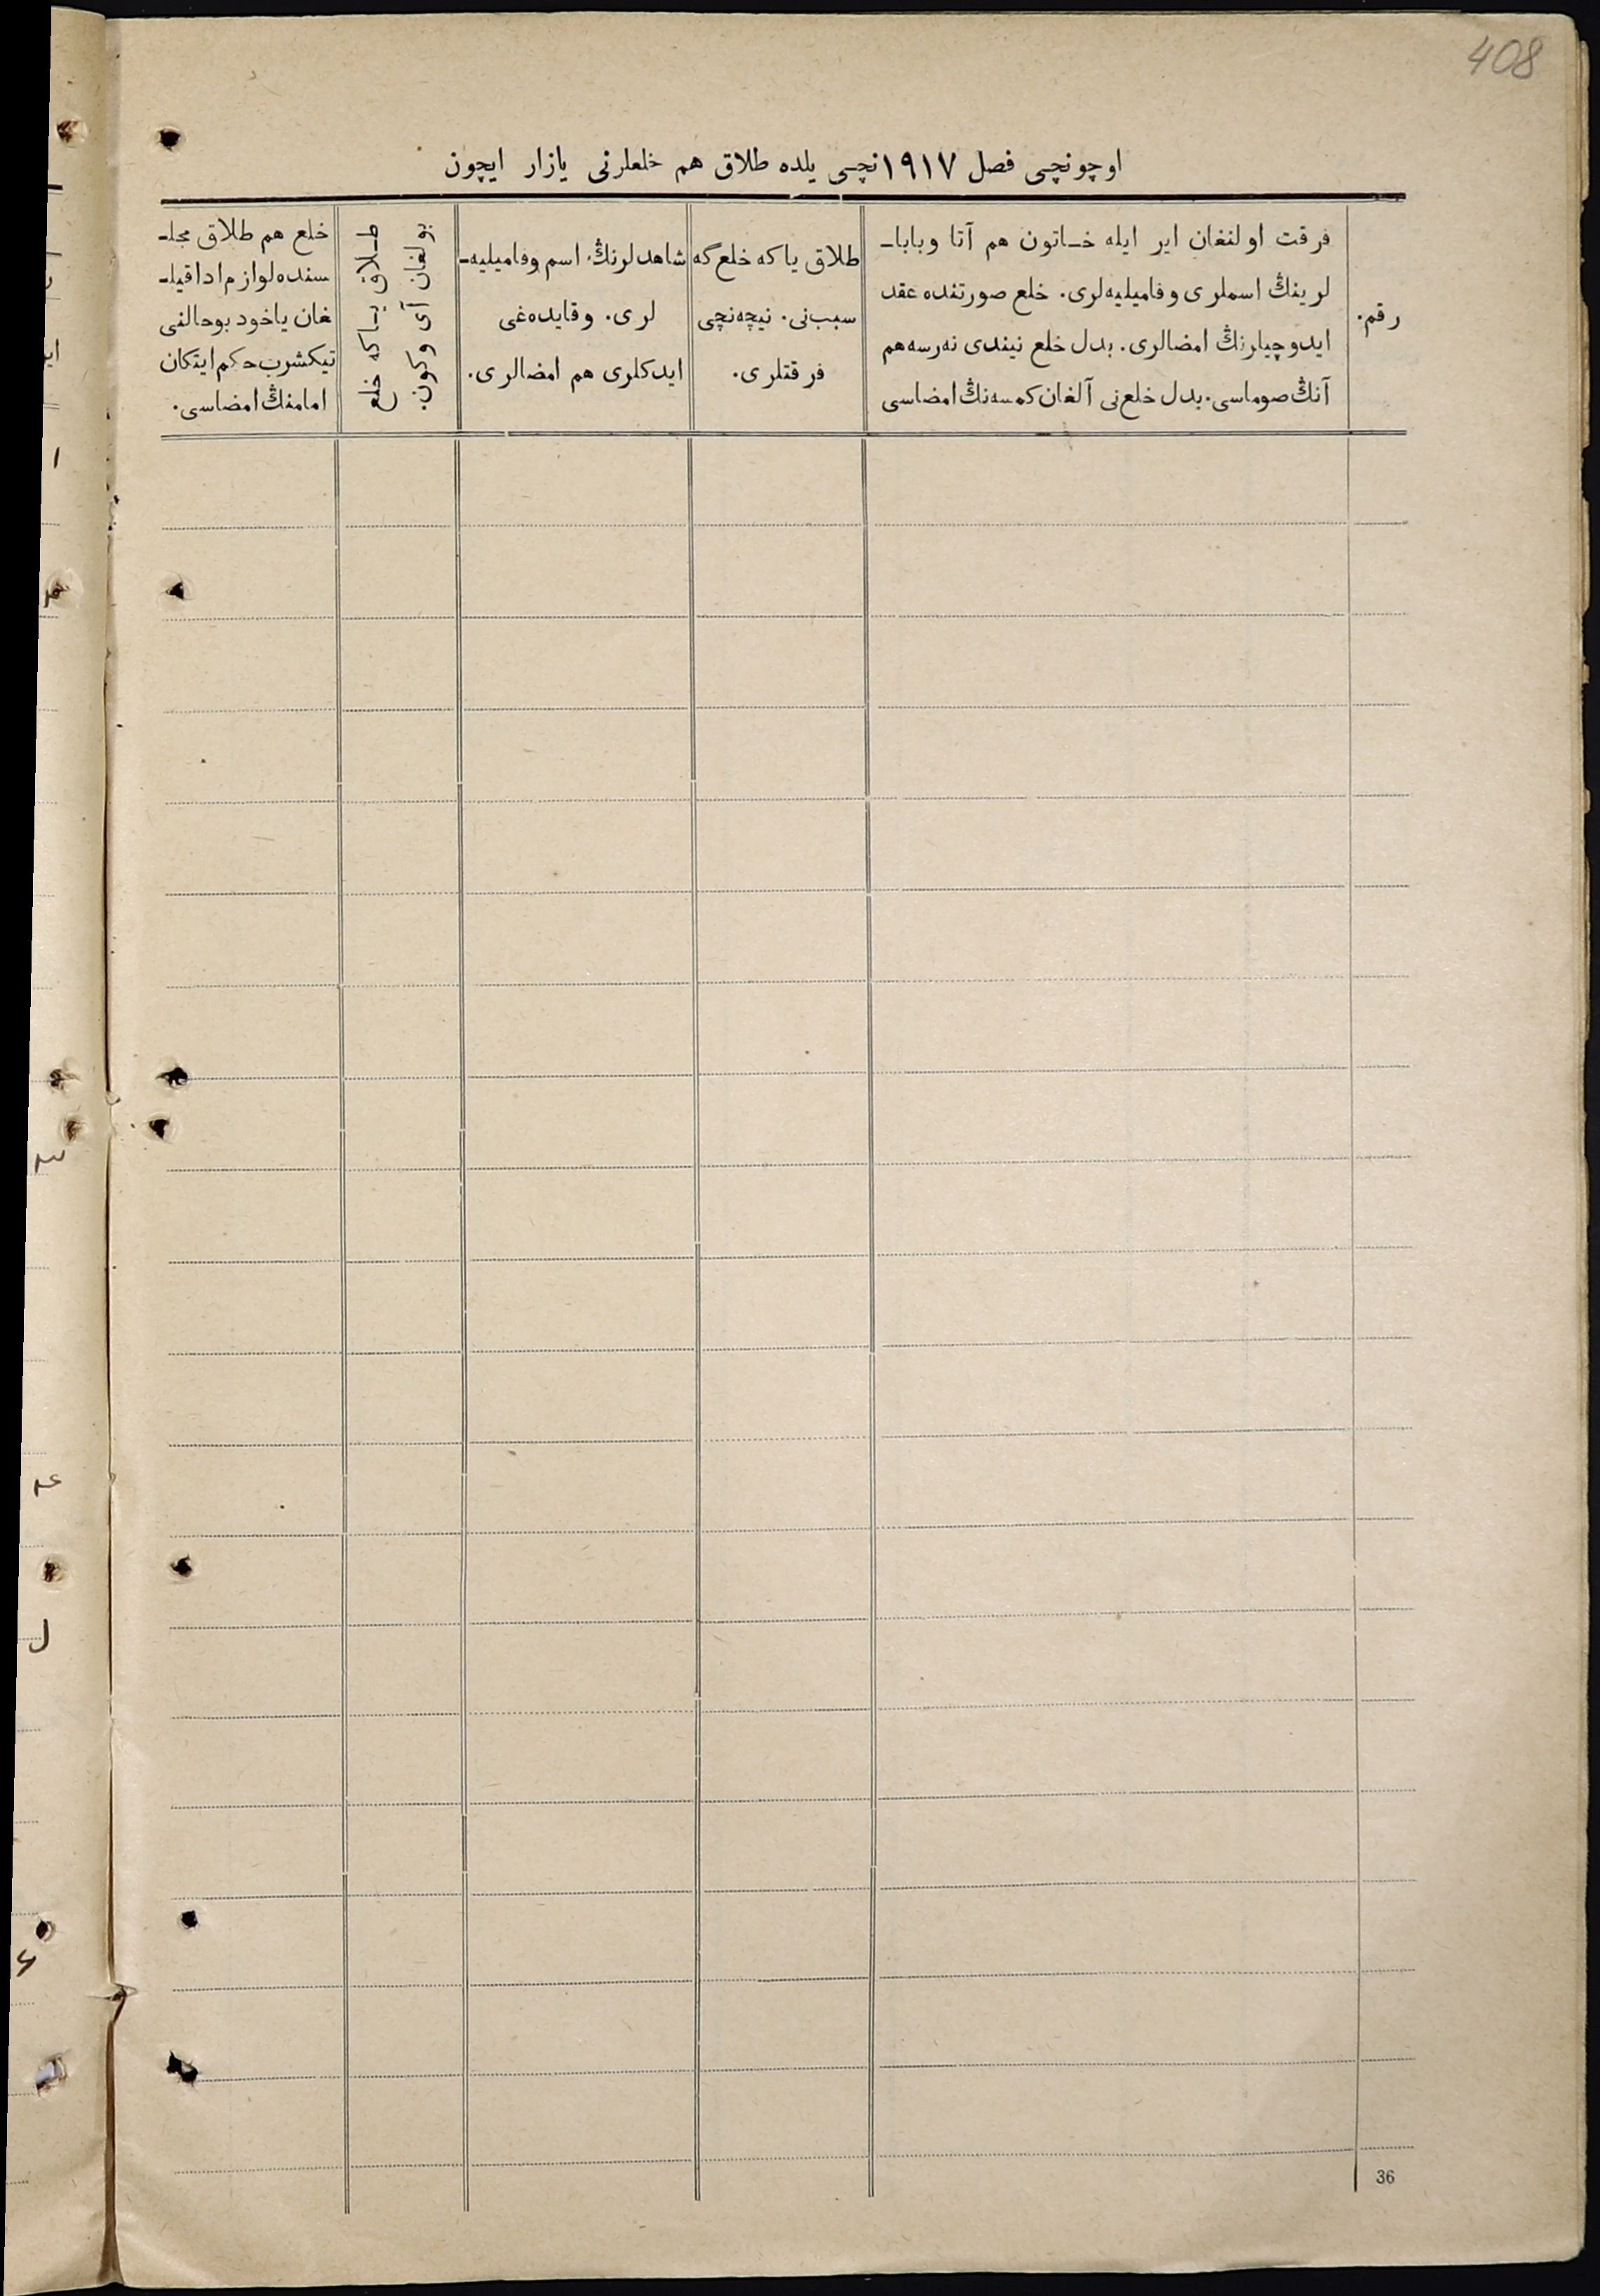 408
اوچونچی فصل ١٩١٧نچی یلده طلاق هم خلعلرنی یازار ایچون
رقم.
فرقت اولنغان ایر ایله خـاتون هم آتا وبابا-
لرینڭ اسملری وفامیلیه‌لری. خلع صورتنده عقد
ایدوچیلرنڭ امضالری. بدل خلع نیندی نه‌رسه‌هم
آنڭ صوماسی. بدل خلع‌نی آلغان کمسه‌نڭ امضاسی
طلاق یاکه خلع‌گه
سبب‌نی. نیچه‌نچی
فرقتلری.
شاهدلرنڭ اسم وفامیلیه-
لری. وقایده‌غی
ایدکلری هم امضالری.
طـلاق یـاکه خلع
بولغان آی وکون.
خلع هم طلاق مجلـ
سنده‌لوازم ادا قیلـ
غان یاخود بوحالنی
تیکشرب حکم ایتکان
امامنڭ امضاسی.
36